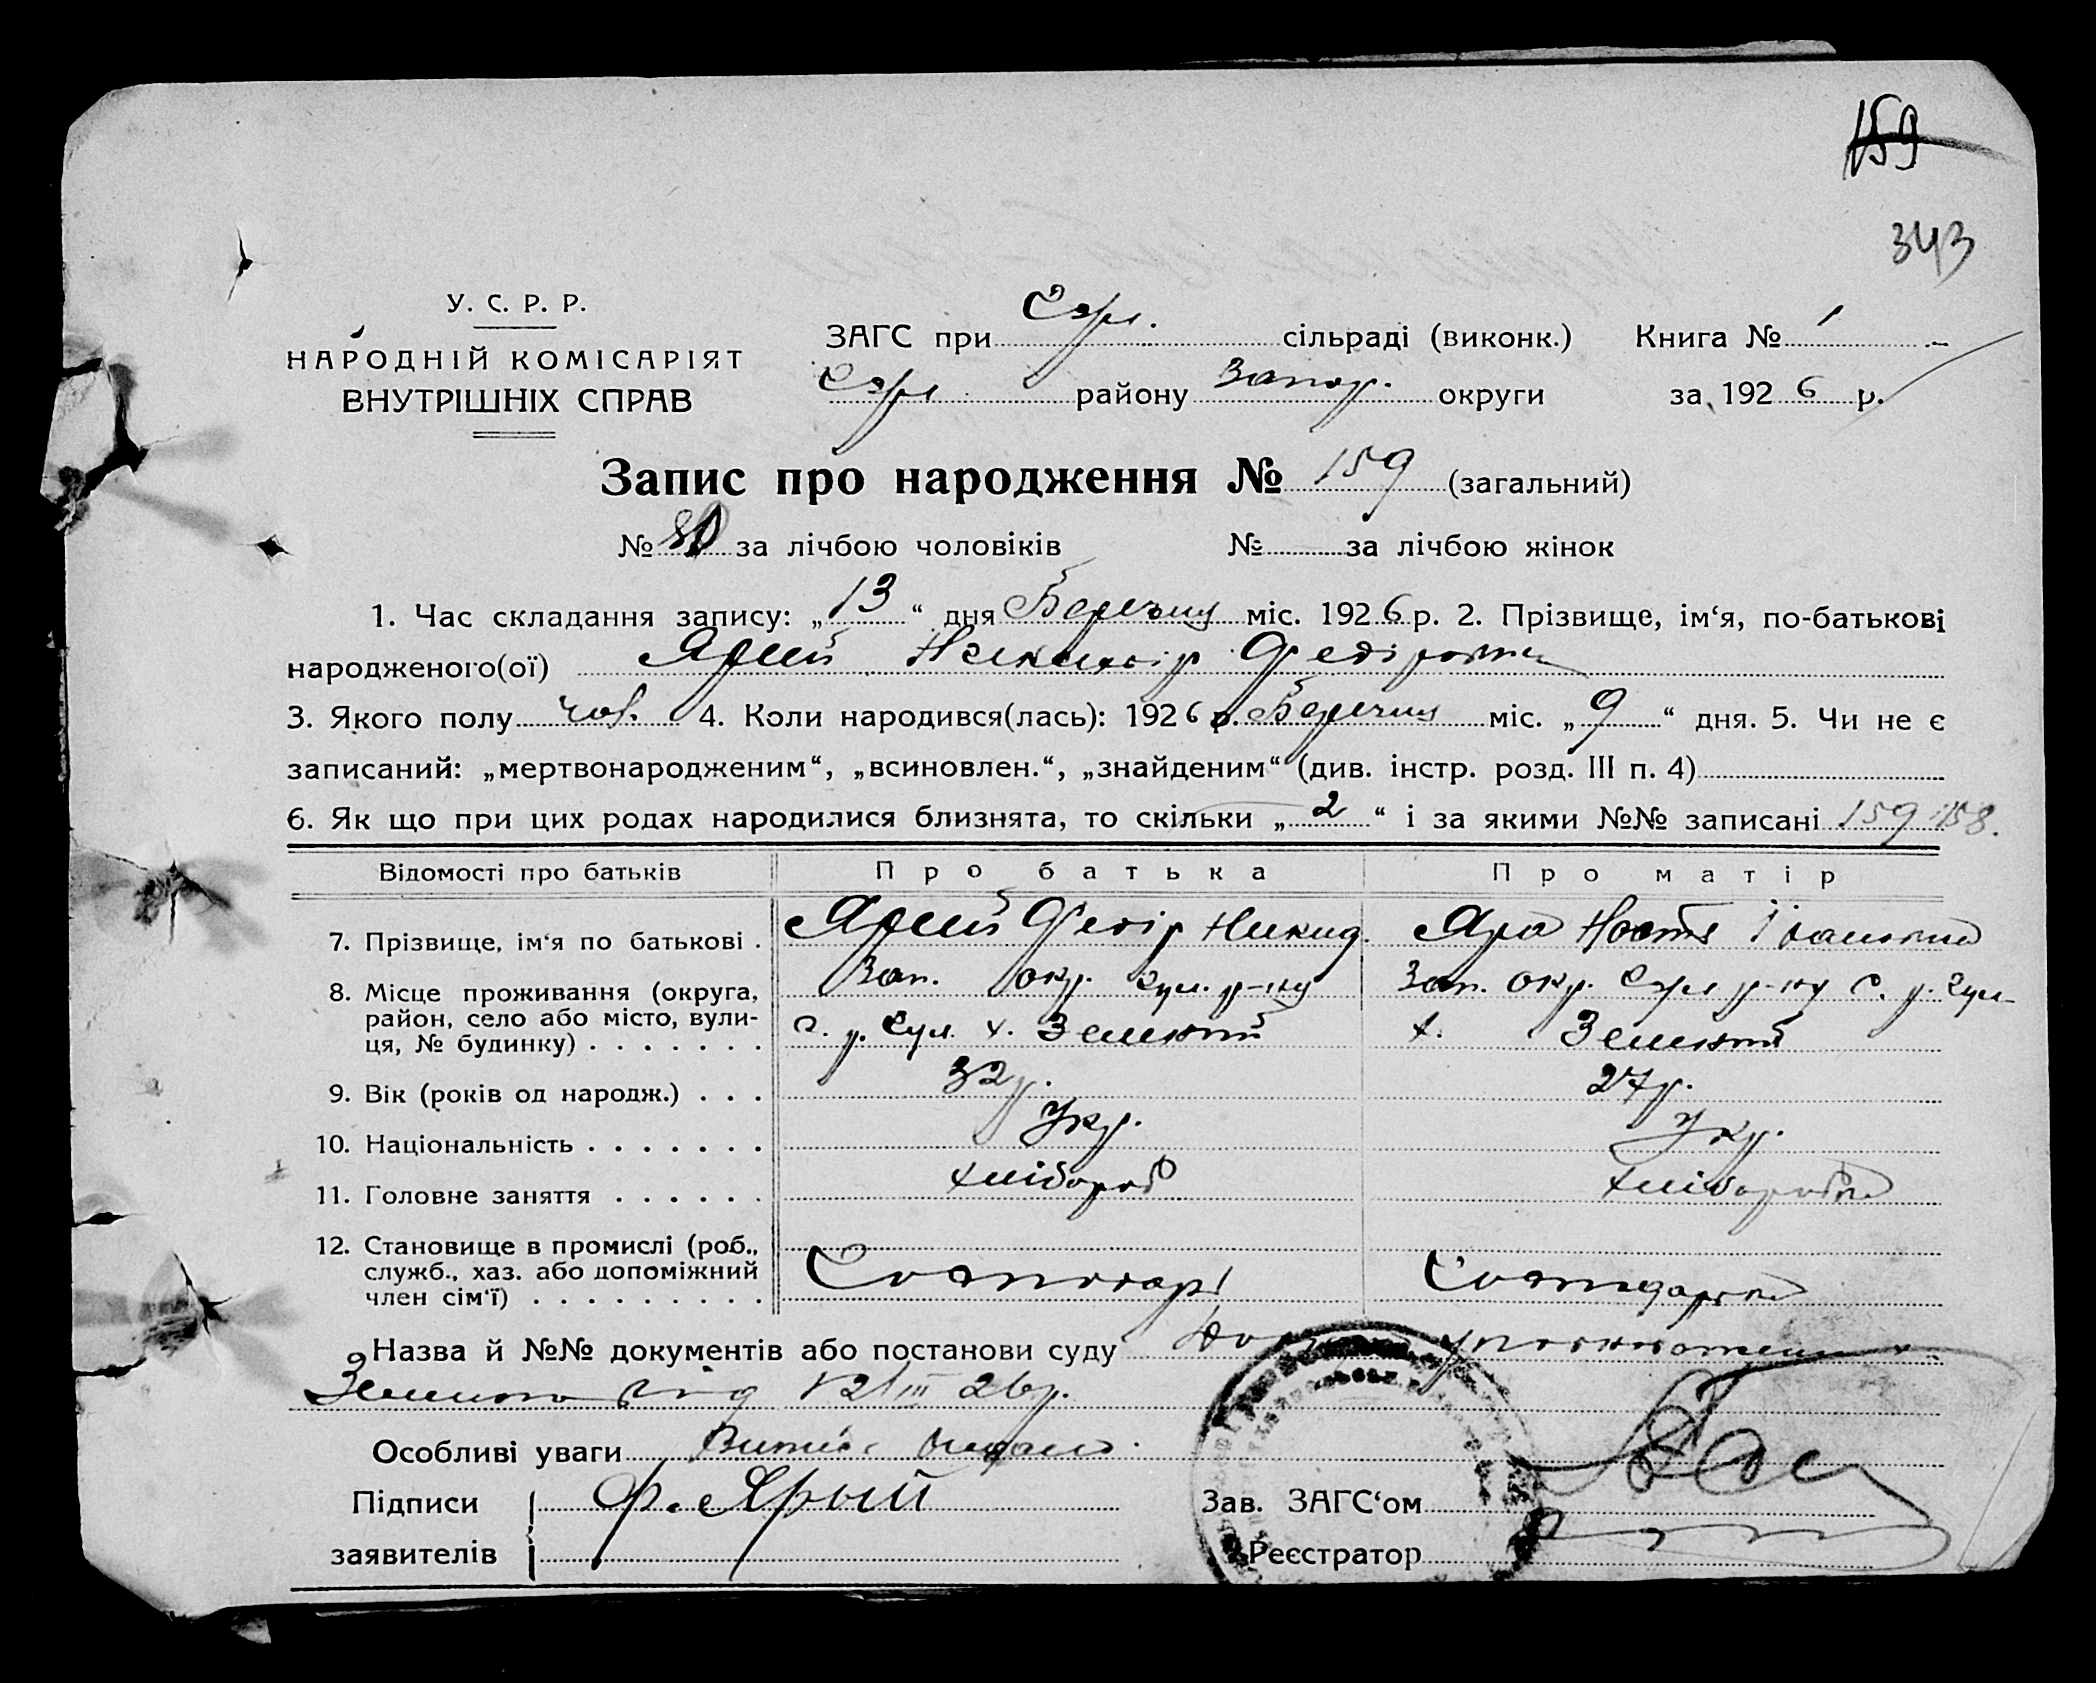 159
343
У. С. Р. Р.
НАРОДНІЙ КОМІСАРІЯТ
ВНУТРІШНІХ СПРАВ
ЗАГС при сільраді (виконк.) Книга № 1
району Запор. округи за 1926 р.
Запис про народження № 159 (загальний)
№ 80 за лічбою чоловіків № за лічбою жінок
1. Час складання запису: „13“ дня Березня міс. 1926 р. 2. Прізвище, ім‘я, по-батькові
народженого(ої) Ярий Никихвір Федірович
3. Якого полу чол. 4. Коли народився(лась): 1926 р. Березня міс. „9“ дня. 5. Чи не є
записаний: „мертвонародженим“, „всиновлен.“, „знайденим“ (див. інстр. розд. III п. 4)
6. Як що при цих родах народилися близнята, то скільки „2“ і за якими №№ записані 159 158.
Відомості про батьків Про батька Про матір
7. Прізвище, ім‘я по батькові . Ярий Федір Никид. Яра Настя Івановна
8. Місце проживання (округа, Зап. окр. р-ну Зап. окр. р-ну с. р.
район, село або місто, вули- с. р. х. Зелений х. Зелений
ця, № будинку) . . . . . . .
9. Вік (років од народж.) . . . 32 р. 27 р.
10. Національність . . . . . . . Укр. Укр.
11. Головне заняття . . . . . . хлібороб хліборобка
12. Становище в промислі (роб.,
служб., хаз. або допоміжний Господарь Господарка
член сім‘ї) . . . . . . . . .
Назва й №№ документів або постанови суду уповноваженого х.
12/III 26 р.
Особливі уваги Витяг видано.
Підписи Ф. Ярый Зав. ЗАГС‘ом
заявителів Реєстратор